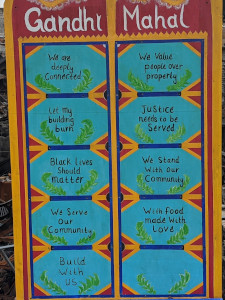 Gandhi Mahal
We are
deeply
Connected
We Value
people over
property
Let my
building
burn
Justice
needs to be
Served
Black lives
Should
matter
We Stand
With Our
Community
We Serve
Our
Community
With Food
made With
Love
Build
With
us